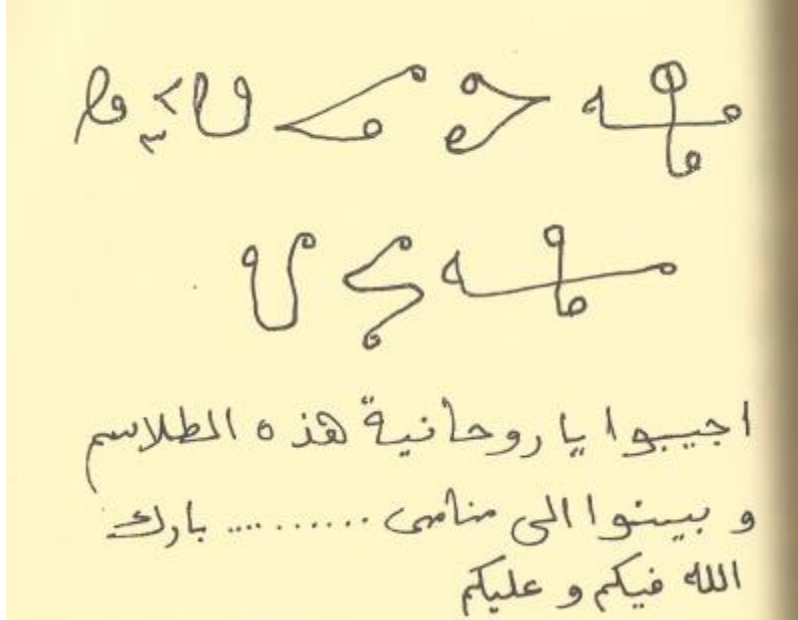 اجيبوا يا روحانية هذه الطلاسم
و بينوا الى منامى .......... بارك
الله فيكم و عليكم